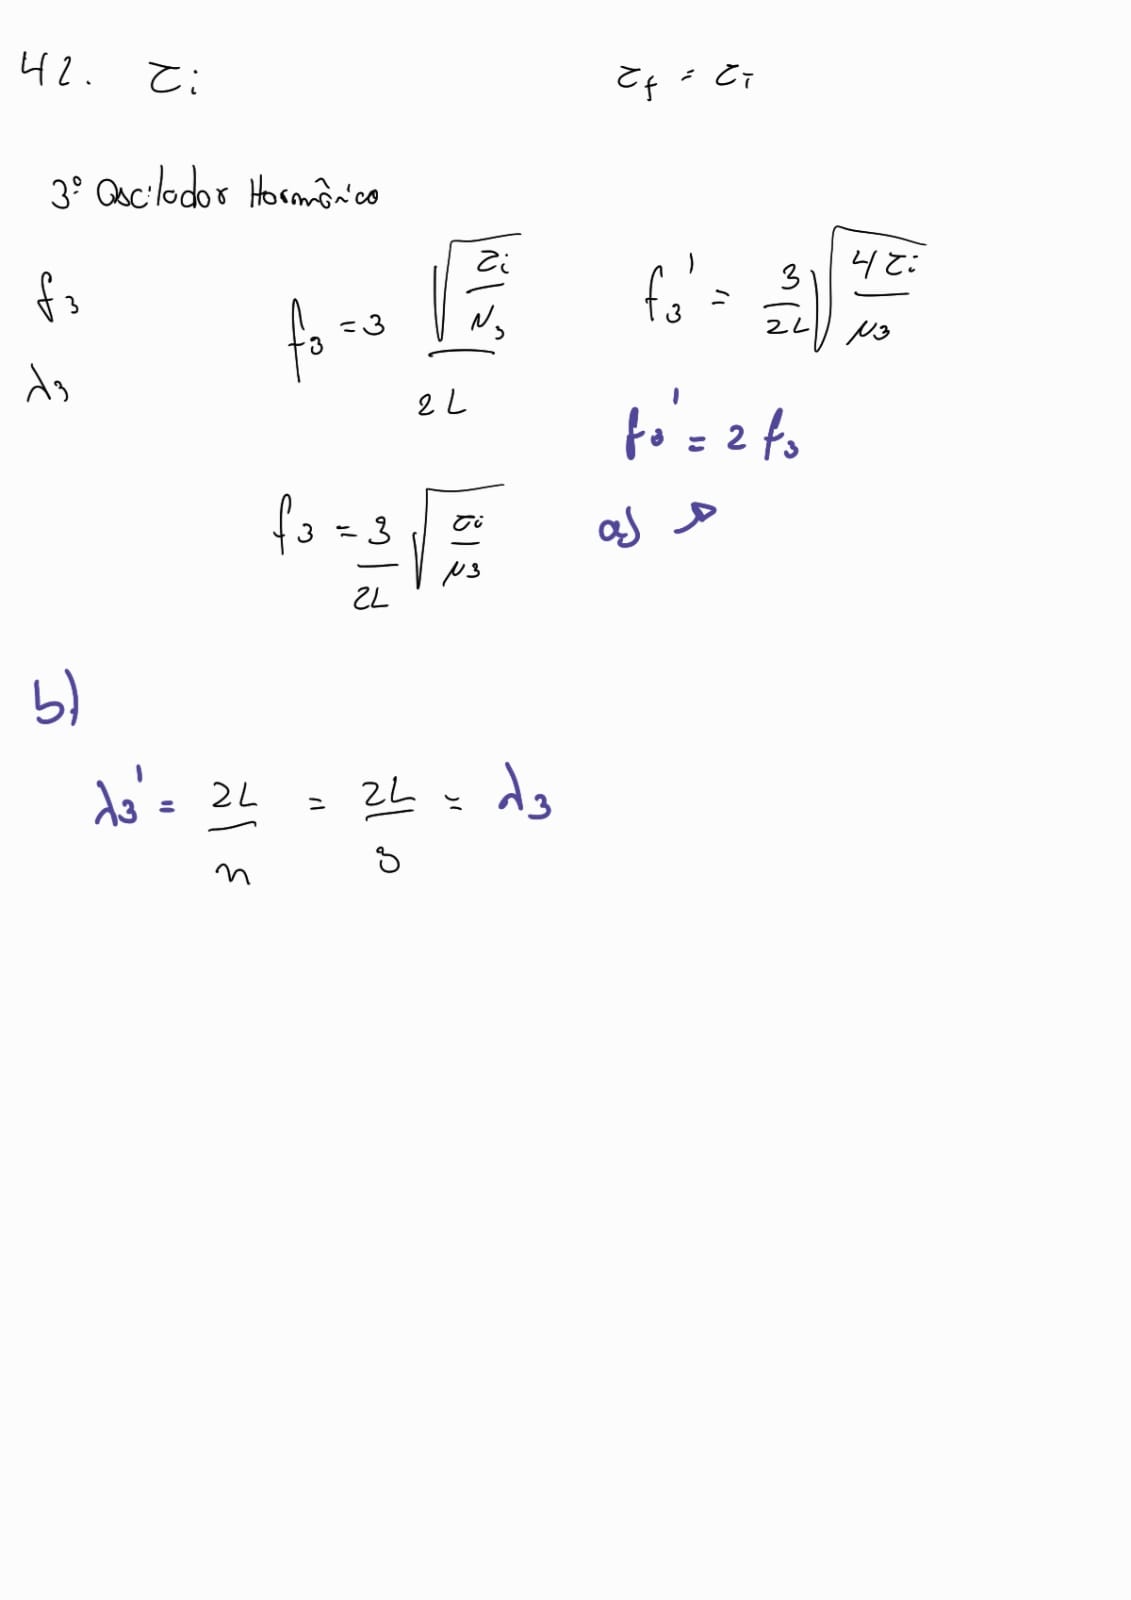 42. τi
τf = τi
3º Oscilador Harmônico
f3
λ3
f3 = 3 √(τi/μ3) / 2L
f3 = 3/2L √(τi/μ3)
f3' = 3/2L √(4τi/μ3)
f3' = 2 f3
a)
b)
λ3' = 2L/n = 2L/3 = λ3